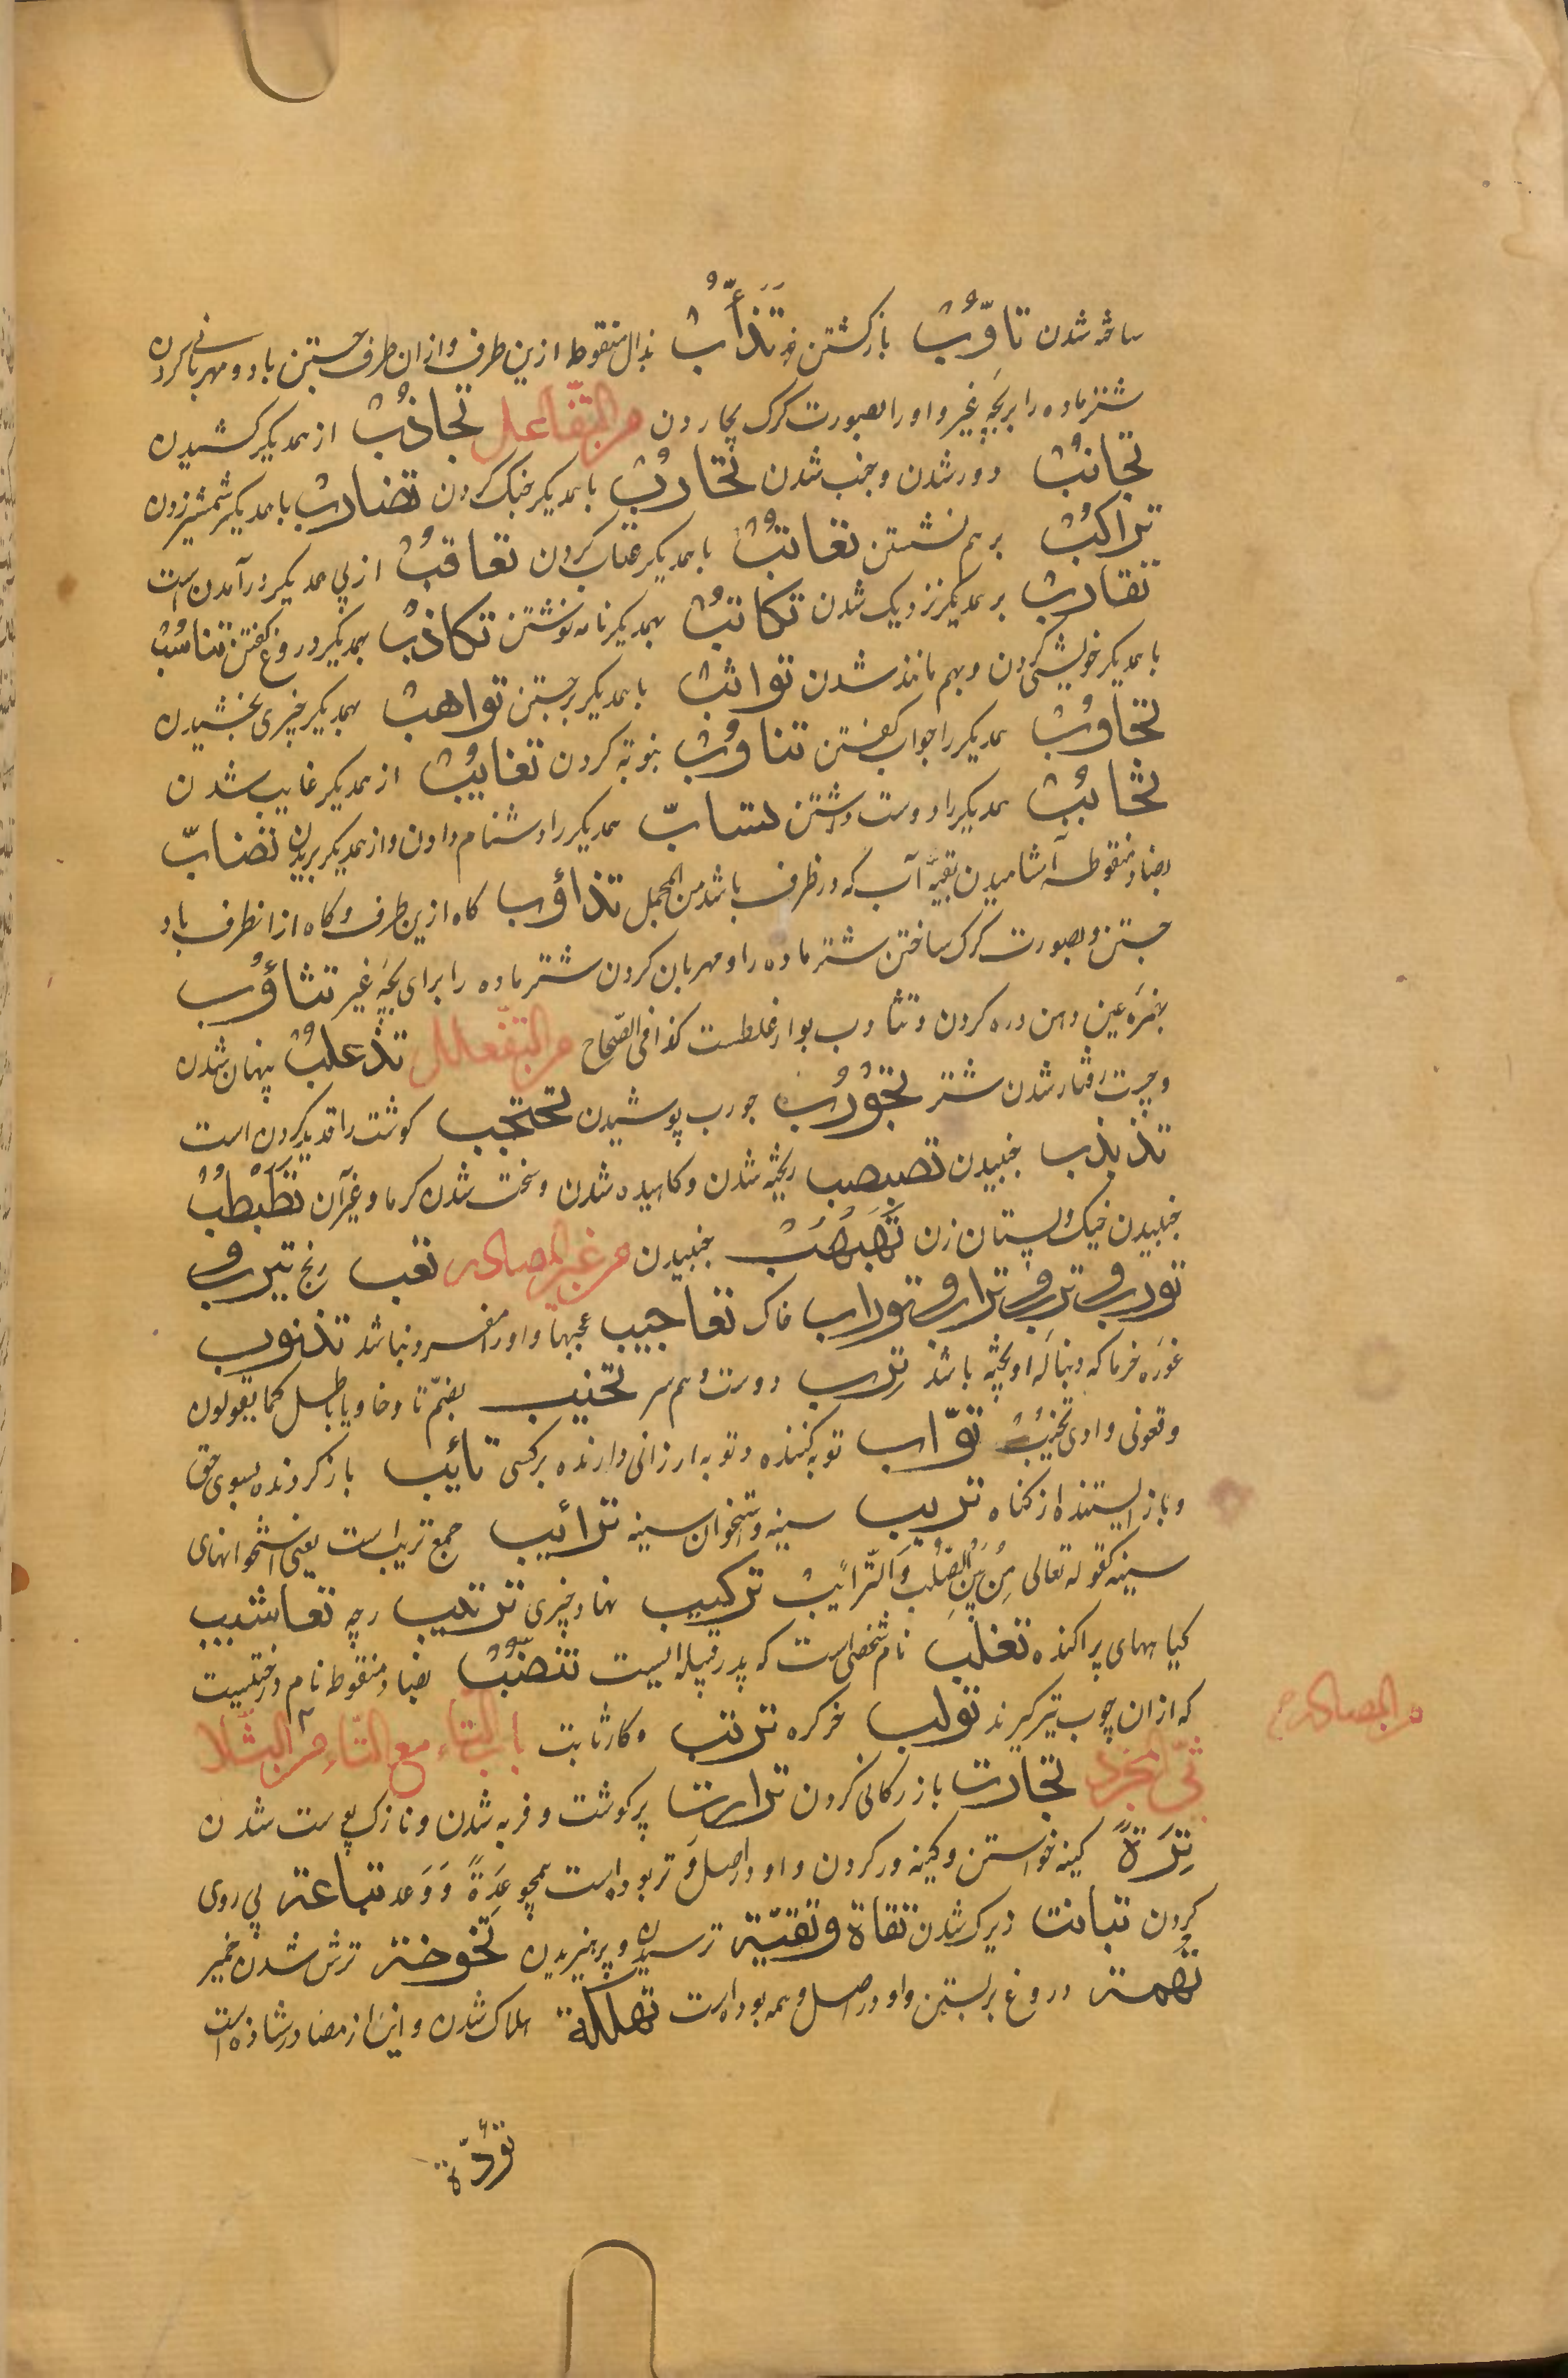 ساخته شدن تاوّب بازگشتن تَذَأُّبٌ بذال منقوطه ازین طرف و ازان طرف جستن باد و مهربانی کردن
شتر ماده را بر بچهٔ غیر و او را بصورت گرگ من التفاعل تجاذبٌ از همدیگر کشیدن
تجانبٌ دور شدن و جنب شدن تحاربٌ با همدیگر جنگ کردن تضاربٌ با همدیگر شمشیر زدن
تراکبٌ بر هم نشستن تعاتبٌ با همدیگر عتاب کردن تعاقبٌ از پی همدیگر در آمدن است
تقاربٌ بر همدیگر نزدیک شدن تکاتبٌ بهمدیگر نامه نوشتن تکاذبٌ بهمدیگر دروغ گفتن تناسُبٌ
با همدیگر خویشی کردن و بهم مانند شدن تواثبٌ با همدیگر برجستن تواهبٌ بهمدیگر چیزی بخشیدن
تجاوُبٌ همدیگر را جواب گفتن تناوُبٌ بنوبه کردن تغایُبٌ از همدیگر غایب شدن
تحابُبٌ همدیگر را دوست داشتن تسابّ همدیگر را دشنام دادن و از همدیگر بریدن تضابّ
بضاد منقوطه آشامیدن بقیهٔ آب که در ظرف باشد من المجمل تذاؤب گاه ازین طرف و گاه از انطرف باد
جستن و بصورت گرگ ساختن شتر ماده را و مهربان کردن شتر ماده را برای بچهٔ غیر تثاؤُب
بهمزه عین دهن دره کردن و تثاوب بواو غلطست کذا فی الصّحاح من التفعلل تذعلبٌ پنهان شدن
و چست رفتار شدن شتر تجوْرُبٌ جورب پوشیدن تجبجب گوشت را قدید کردن است
تذبذب جنبیدن تصبصب ریخته شدن و کاهیده شدن و سخت شدن گرما و غیر آن تَطَبْطُبٌ
جنبیدن خیک و پستان زن تَهَبْهُبٌ جنبیدن من غیر المصادر تعب رنج تیرب و
تورب و ترب و تراب و توراب خاک تعاجیب عجبها و او را مفرد نباشد تذنوب
غوره خرما که دنباله او پخته باشد تِرب دوست و هم سر تخیّب بضمّ تا و خا و یا باطل کما یقولون
وقعوا فی وادی تُخُیِّبَ توّاب توبه کننده و توبه ارزانی دارنده بر کسی تائب باز گردنده بسوی حق
و باز ایستنده از گناه تریب سینه و استخوان سینه ترائیب جمع تریب است یعنی استخوانهای
سینه کقوله تعالی مِنْ بَیْنِ الصُّلْبِ وَالتَّرائِبِ ترکیب نهاد چیزی ترتیب رجه تعاشیب
گیاههای پراکنده تغلب نام شخصی است که پدر قبیله ایست تنضُبٌ بضاد منقوطه نام درختیست
که ازان چوب تیر گیرند تولب خر کره ترتب و کار ثابت باب التّاء مع التّاء من الثلا
من المصادر
ثی المجرد تجارت بازرگانی کردن ترارت پر گوشت و فربه شدن و نازک پوست شدن
تِرَةً کینه خواستن و کینه ور کردن و او در اصل وتر بوده است همچو عِدَةً وَ وَعد تباعة پی روی
کردن تبانت زیرک شدن تقاة و تقیّة ترسیدن و پرهیزیدن تخوخة ترش شدن خمیر
تُهمة دروغ بر بستن و او در اصل وهمه بوده است تهلکة هلاک شدن و این از مصادر شاذه است
تؤدة